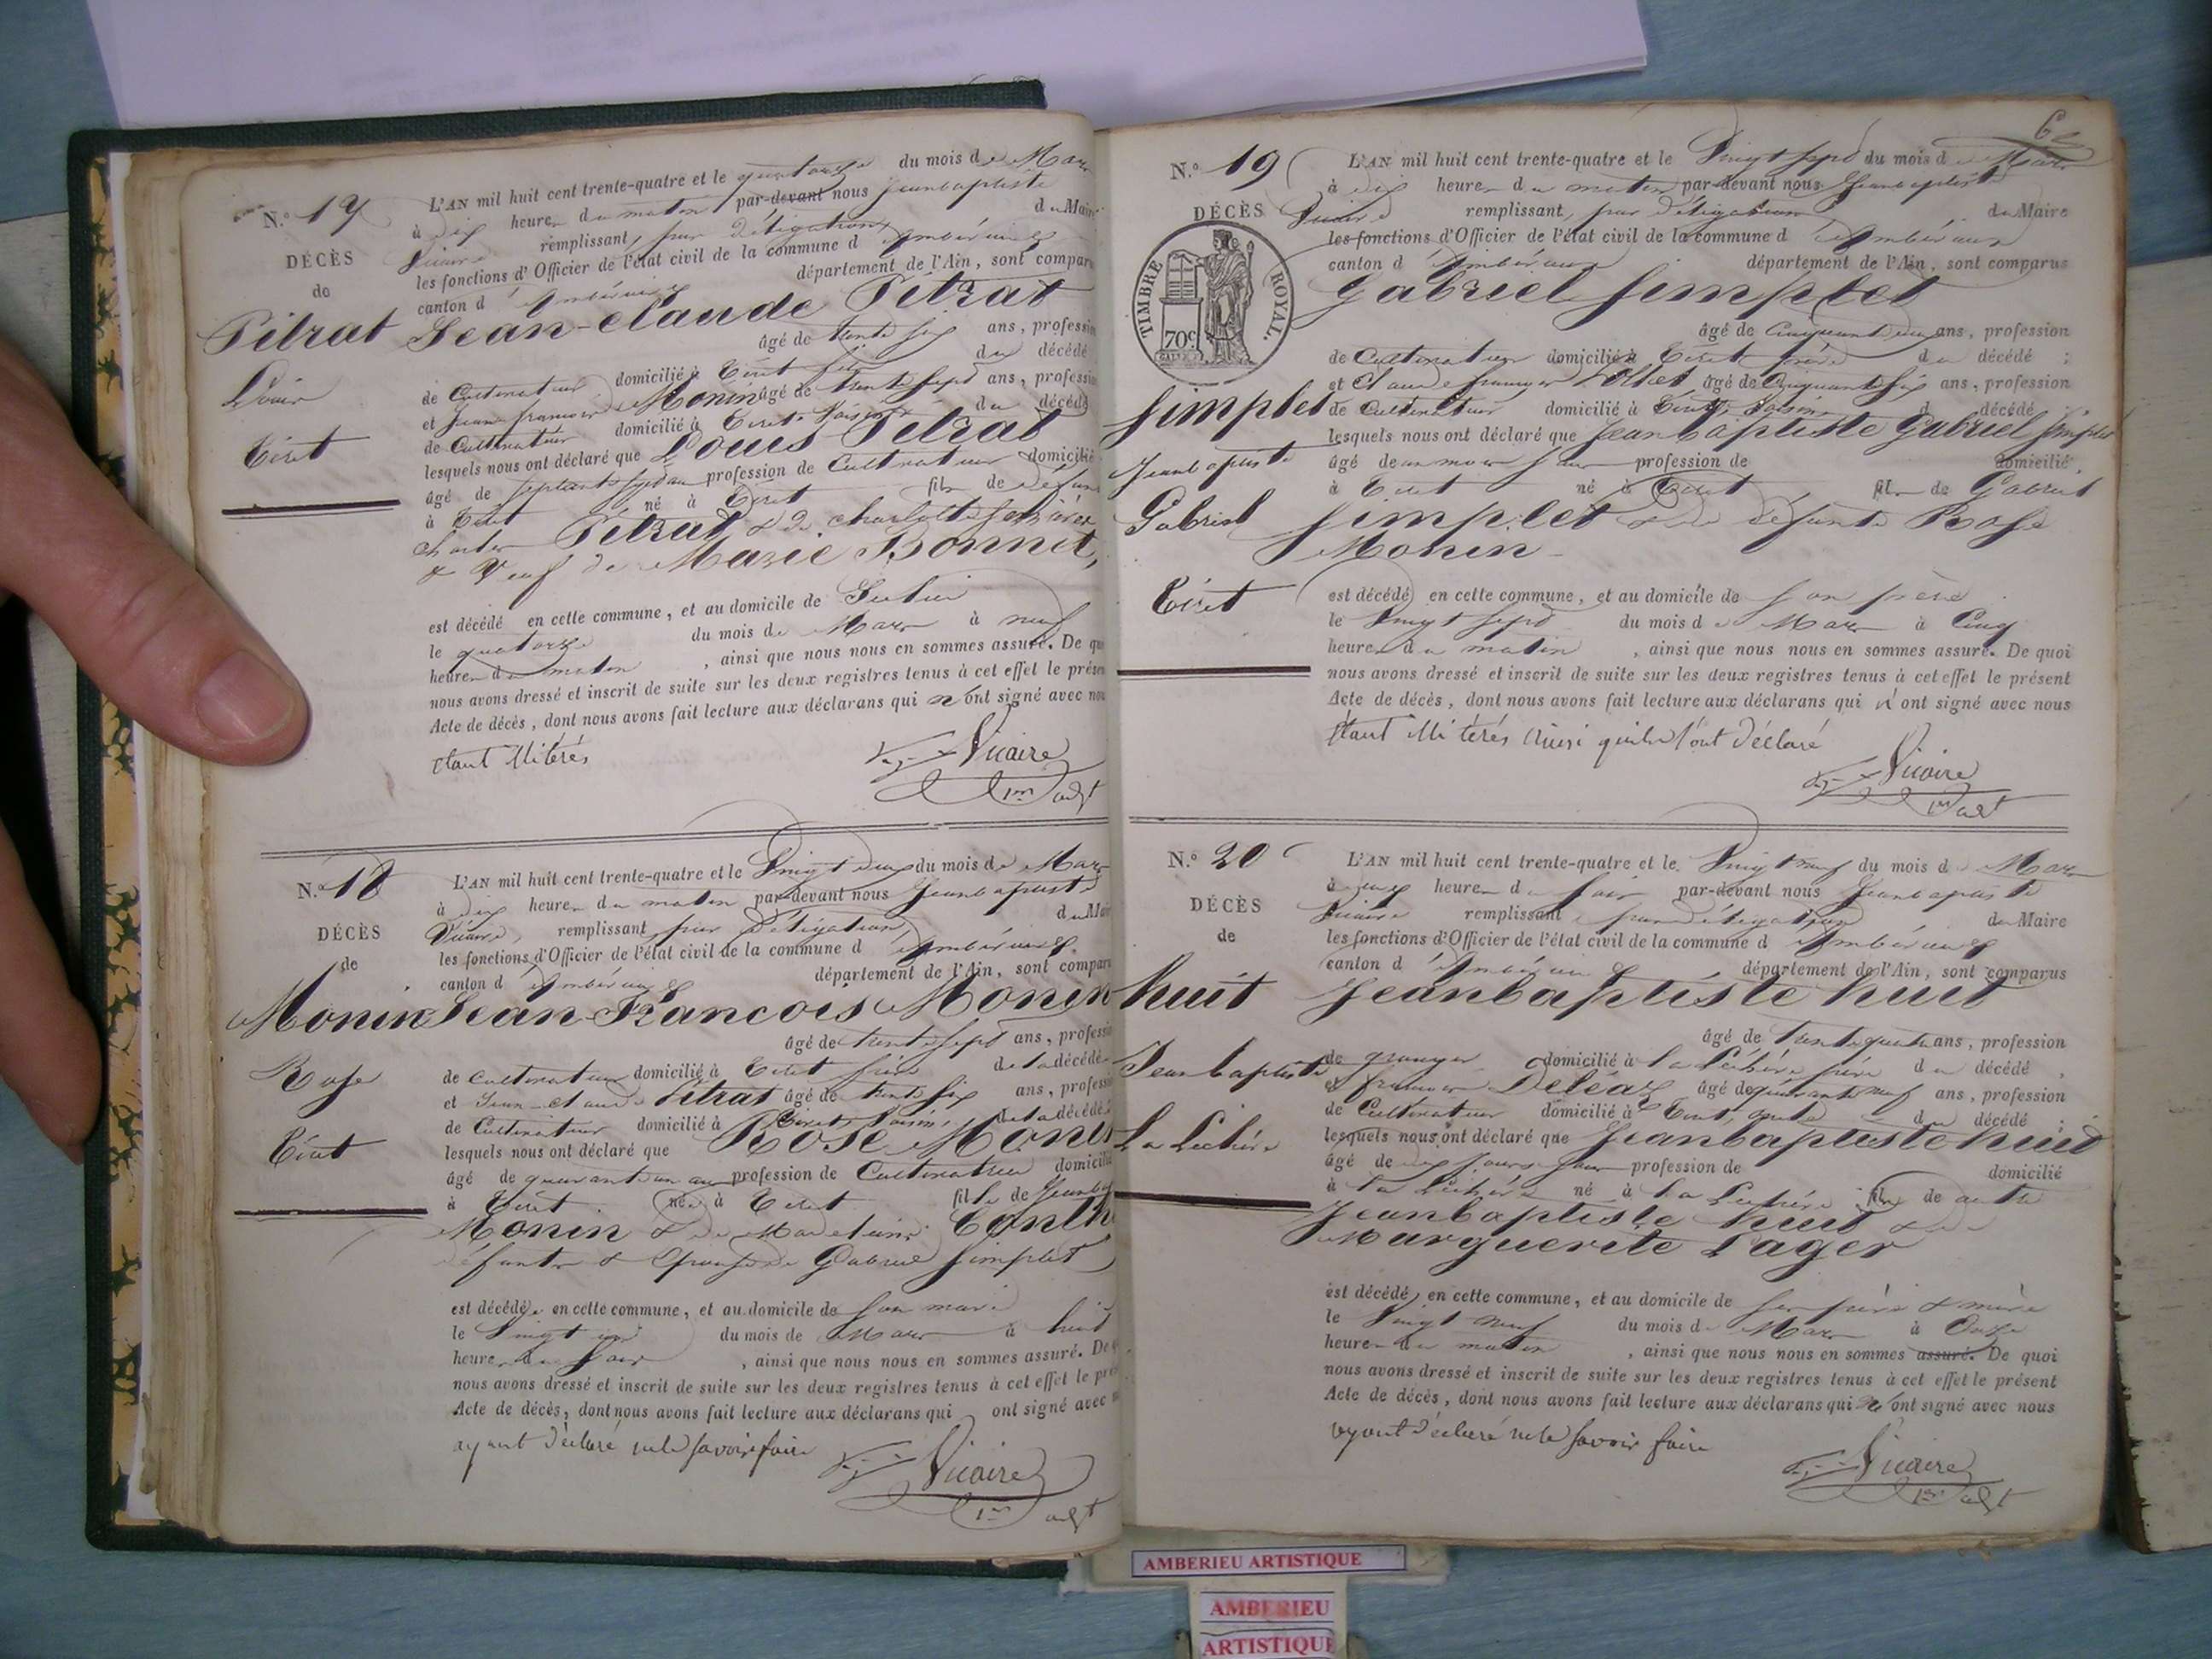 N.° 17
DÉCÈS
de
Pétrat
Louis
Tiret
L'AN mil huit cent trente-quatre et le quatorze du mois de Mars
à dix heures du matin par-devant nous Jeanbaptiste
Vicaire remplissant, par délégation du Maire
les fonctions d'Officier de l'état civil de la commune d'Ambérieux
canton d'Ambérieux département de l'Ain, sont comparu
Jean-Claude Pétrat
âgé de trente six ans, profession
de Cultivateur domicilié à Tiret fils du décédé
et Jean françois Monin âgé de trente sept ans, profession
de Cultivateur domicilié à Tiret, Voisin du décédé
lesquels nous ont déclaré que Louis Pétrat
âgé de ans profession de Cultivateur domicilié
à Tiret né à Tiret fils de défunt
Charles Pétrat & de Charlotte
& Veuf de Marie Bonnet,
est décédé en cette commune, et au domicile de
le quatorze du mois de Mars à neuf
heures du matin, ainsi que nous nous en sommes assuré. De quoi
nous avons dressé et inscrit de suite sur les deux registres tenus à cet effet le présent
Acte de décès, dont nous avons fait lecture aux déclarans qui n'ont signé avec nous
étant illitérés
Vicaire
1er adjt
N.° 18
DÉCÈS
de
Monin
Rose
Tiret
L'AN mil huit cent trente-quatre et le Vingt deux du mois de Mars
à dix heures du matin par-devant nous Jeanbaptiste
Vicaire, remplissant par délégation du Maire
les fonctions d'Officier de l'état civil de la commune d'Ambérieux
canton d'Ambérieux département de l'Ain, sont comparu
Jean-François Monin
âgé de trente sept ans, profession
de cultivateur domicilié à Tiret frère de la décédée
et Jean-Claude Pétrat âgé de trente six ans, profession
de Cultivateur domicilié à Tiret, Voisin, de la décédée
lesquels nous ont déclaré que Rose Monin
âgé de quarante un ans profession de Cultivatrice domicilié
à Tiret née à Tiret fille de Jeanbap
Monin & de Madeleine
défunts & Epouse de Gabriel Simplet
est décédée en cette commune, et au domicile de son mari
le Vingt un du mois de Mars à huit
heures du soir, ainsi que nous nous en sommes assuré. De
nous avons dressé et inscrit de suite sur les deux registres tenus à cet effet le pré
Acte de décès, dont nous avons fait lecture aux déclarans qui ont signé avec
ayant déclaré ne le savoir faire
Vicaire
1er adjt
N.° 19
DÉCÈS
TIMBRE ROYAL.
70c
Simplet
Jeanbaptiste
Gabriel
Tiret
L'AN mil huit cent trente-quatre et le Vingt sept du mois de Mars
à dix heures du matin par-devant nous Jeanbaptiste
Vicaire remplissant, par délégation du Maire
les fonctions d'Officier de l'état civil de la commune d'Ambérieux
canton d'Ambérieux département de l'Ain, sont comparus
Gabriel Simplet
âgé de Cinquante deux ans, profession
de Cultivateur domicilié à Tiret père du décédé ;
et Claude françois âgé de Cinquante six ans, profession
de Cultivateur domicilié à Tiret, Voisin d décédé ;
lesquels nous ont déclaré que Jeanbaptiste Gabriel Simplet
âgé de profession de domicilié
à Tiret né à Tiret fils de Gabriel
Simplet & de défunte Rose
Monin
est décédé en cette commune, et au domicile de son père
le Vingt sept du mois de Mars à Cinq
heures du matin, ainsi que nous nous en sommes assuré. De quoi
nous avons dressé et inscrit de suite sur les deux registres tenus à cet effet le présent
Acte de décès, dont nous avons fait lecture aux déclarans qui n'ont signé avec nous
étant illitérés ainsi qu'ils l'ont déclaré
Vicaire
1er adjt
N.° 20
DÉCÈS
de
huit
Jeanbaptiste
La Léchère
L'AN mil huit cent trente-quatre et le Vingt neuf du mois de Mars
à heures du soir par-devant nous Jeanbaptiste
Vicaire remplissant par délégation du Maire
les fonctions d'Officier de l'état civil de la commune d'Ambérieux
canton d'Ambérieux département de l'Ain, sont comparus
Jeanbaptiste huit
âgé de trente quatre ans, profession
de granger domicilié à la Léchère père du décédé,
et françois Deléaz âgé de quarante neuf ans, profession
de Cultivateur domicilié à Tiret, du décédé ;
lesquels nous ont déclaré que Jeanbaptiste huit
âgé de profession de domicilié
à la Léchère né à la Léchère fils de
Jeanbaptiste huit & de
Marguerite Pager
est décédé en cette commune, et au domicile de ses père & mère
le Vingt neuf du mois de Mars à Onze
heures du matin, ainsi que nous nous en sommes assuré. De quoi
nous avons dressé et inscrit de suite sur les deux registres tenus à cet effet le présent
Acte de décès, dont nous avons fait lecture aux déclarans qui n'ont signé avec nous
ayant déclaré ne le savoir faire
Vicaire
1er adjt
AMBERIEU ARTISTIQUE
AMBERIEU
ARTISTIQUE